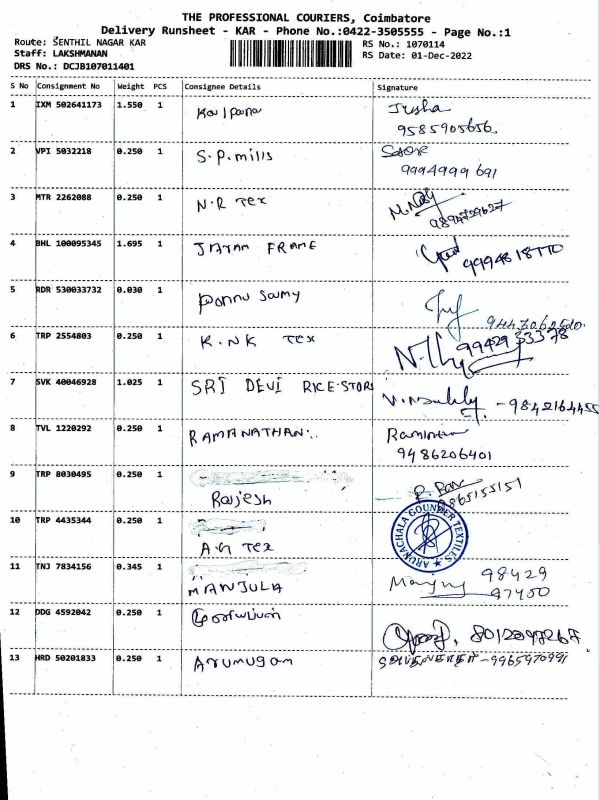 THE PROFESSIONAL COURIERS, Coimbatore
Delivery Runsheet - KAR - Phone No.:0422-3505555 - Page No.:1
Route: SENTHIL NAGAR KAR
RS No.: 1070114
Staff: LAKSHMANAN
RS Date: 01-Dec-2022
DRS No.: DCJB107011401
S No Consignment No Weight PCS Consignee Details Signature
1 IXM 502641173 1.550 1 Kalpana Irisha
9585905656
2 VPI 5032218 0.250 1 S.P.mills
9994999691
3 MTR 2262088 0.250 1 N.R Tex
9894729627
4 BHL 100095345 1.695 1 JAYAM FRAME
9994818770
5 RDR 530033732 0.030 1 Ponnu Samy
6 TRP 2554803 0.250 1 K.N.K Tex 9942933378
7 SVK 40046928 1.025 1 SRI DEVI RICE-STORE -9842164455
8 TVL 1220292 0.250 1 RAMANATHAN
9486206401
9 TRP 8030495 0.250 1 Rajesh
9865155151
10 TRP 4435344 0.250 1 A.G Tex
ARUNACHALA GOUNDER TEXTILES
11 TNJ 7834156 0.345 1 MANJULA 98429
97450
12 DDG 4592042 0.250 1 முனியப்பன் 8012097267
13 HRD 50201833 0.250 1 Arumugam -9965970991